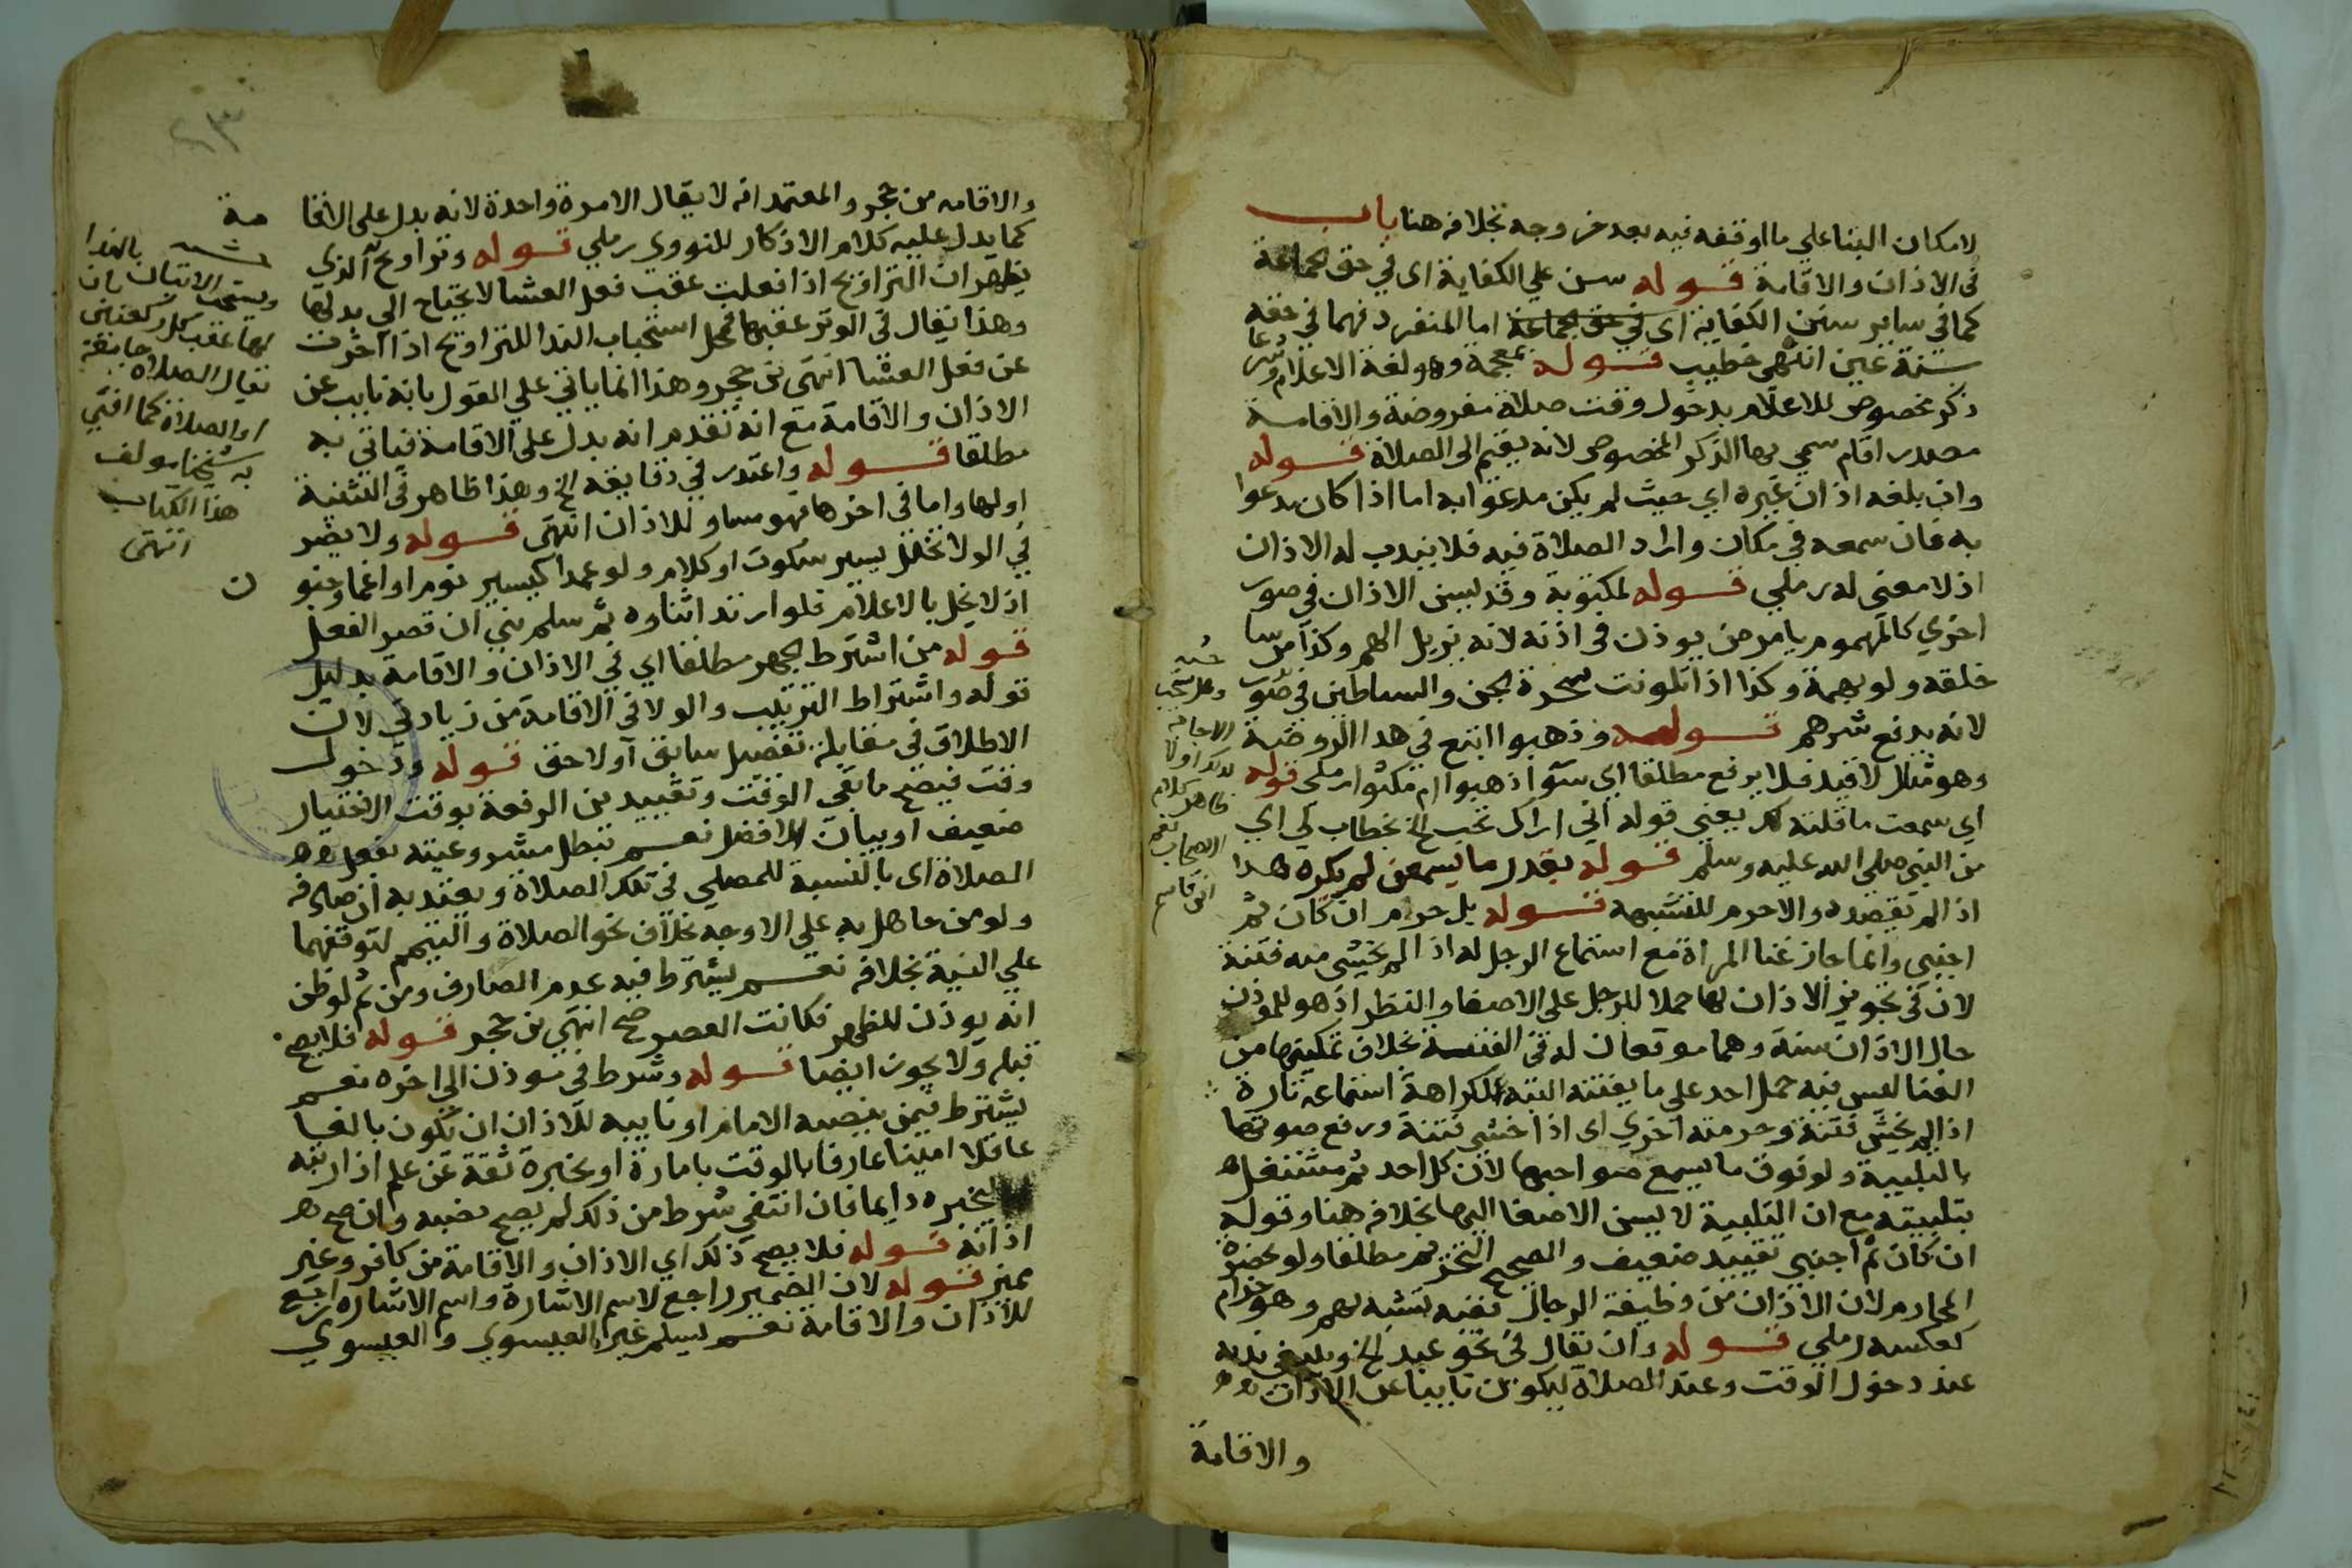 لامكان البنا علي ما اوقفه فيه بعد خروجه بخلافه هنا باب
في الاذان والاقامة قوله سن علي الكفاية اي في حق الجماعة
كما في ساير سنن الكفاية اي في حق الجماعة اما المنفرد فهما في حقه
سنة عين انتهى خطيب قوله بمعجمة وهو لغة الاعلام وشرعا
ذكر مخصوص للاعلام بدخول وقت صلاة مفروضة والاقامة
مصدر اقام سمي بها الذكر المخصوص لانه يقيم الى الصلاة قوله
وان بلغه اذان غيره اي حيث لم يكن مدعوا به اما اذا كان مدعوا
به فان سمعه في مكان واراد الصلاة فيه فلا يندب له الاذان
اذ لا معنى له رملي قوله لمكتوبة وقد يسن الاذان في صور
اخري كالمهموم يامر من يوذن في اذنه لانه يزيل الهم وكذا من سا
خلقه ولو بهيمة وكذا اذا تلونت سحرة الجن والشياطين في صور
لانه يدفع شرهم قوله وذهبوا اتبع في هذا الروضة
وهو مثال لا قيد فلا يرفع مطلقا اي سوا ذهبوا ام مكثوا رملي قوله
اي سمعت ما قلته لك يعني قوله اني اراك تحب الخ بخطاب لي اي
من النبي صلى الله عليه وسلم قوله بقدر ما يسمعن لم يكره هذا
اذا لم تقصده والا حرم للتشبيه قوله بل حرام ان كان ثم
اجنبي وانما جاز غنا المراة مع استماع الرجل له اذا لم يخش منه فتنة
لان في تجويز الاذان لها حملا للرجل على الاصغا والنظر اذ هو للموذن
حال الاذان سنة وهما موقعان له في الفتنة بخلاف تمكينها من
الغنا ليس فيه حمل احد على ما يفتنه البته لكراهة استماعه تارة
اذا لم يخش فتنة وحرمته اخري اي اذا خشي فتنة ورفع صوتها
بالتلبية ولو فوق ما يسمع صواحبها لان كل احد ثم مشتغل
بتلبيته مع ان التلبية لا يسن الاصغا اليها بخلافه هنا وقوله
ان كان ثم اجنبي تقييد ضعيف والصحيح التحريم مطلقا ولو بحضرة
المحارم لان الاذان من وظيفة الرجال ففيه تشبه بهم وهو حرام
كعكسه رملي قوله وان يقال في نحو عيد الخ وينبغي ندبه
عند دخول الوقت وعند الصلاة ليكون نايبا عن الاذان
والاقامة
وهل يستحب
الاجابة
لذلك اولا
ظاهر كلام
الاصحاب نعم
ابن قاسم
والاقامه من حجر والمعتمد انه لا يقال الا مرة واحدة لانه بدل على الاقا
مة
كما يدل عليه كلام الاذكار للنووي رملي قوله وتراويح الذي
يظهر ان التراويح اذا فعلت عقب فعل العشا لا يحتاج الي بدلها
وهذا يقال في الوتر عقبها فمحل استحباب الندا للتراويح اذا اخرت
عن فعل العشا انتهى بن حجر وهذا انما ياتي علي القول بانه نايب عن
الاذان والاقامة مع انه تقدم انه بدل على الاقامة فياتي به
مطلقا قوله واعتدر في دقايقه الخ وهذا ظاهر في التثنية
اولها واما في اخرها فهو مساو للاذان انتهى قوله ولا يضر
في الولا تخلل يسير سكوت او كلام ولو عمدا كيسير نوم او اغما وجنو
ن
اذ لا يخل بالاعلام فلو ارتد اثناوه ثم سلم بني ان قصر الفصل
قوله من اشترط الجهر مطلقا اي في الاذان والاقامة بدليل
قوله واشتراط الترتيب والولا في الاقامة من زيادتي لان
الاطلاق في مقابلة تفصيل سابق او لاحق قوله ودخول
وقت فيصح ما بقي الوقت وتقييد بن الرفعة بوقت الاختيار
ضعيف او بيان للافضل نعم تبطل مشروعيته بفعل
الصلاة اي بالنسبة للمصلي في تلك الصلاة ويعتد به ان صادفه
ولو من جاهل به على الاوجه بخلاف نحو الصلاة والتيمم لتوقفهما
علي النية بخلافه نعم يشترط فيه عدم الصارف ومن ثم لو ظن
انه يوذن للظهر فكانت العصر صح انتهي بن حجر قوله فلا يصح
قبله ولا يجوز ايضا قوله وشرط في موذن الى اخره نعم
يشترط فيمن ينصبه الامام او نايبه للاذان ان تكون بالغا
عاقلا امينا عارفا بالوقت بامارة او بخبرة ثقة عن علم اذا رتبه
لخبره دايما فان انتفى شرط من ذلك لم يصح نصبه وان صح
اذانه قوله فلا يصح ذلك اي الاذان والاقامة من كافر وغير
مميز قوله لان الضمير راجع لاسم الاشارة واسم الاشاره راجع
للاذان والاقامة نعم يسلم غير العيسوي والعيسوي
ويستحب الاتيان بالندا
لها عقب كل ركعتين بان
يقال الصلاة جامعة
او الصلاة كما افتى
به شيخنا مولف
هذا الكتاب
انتهى